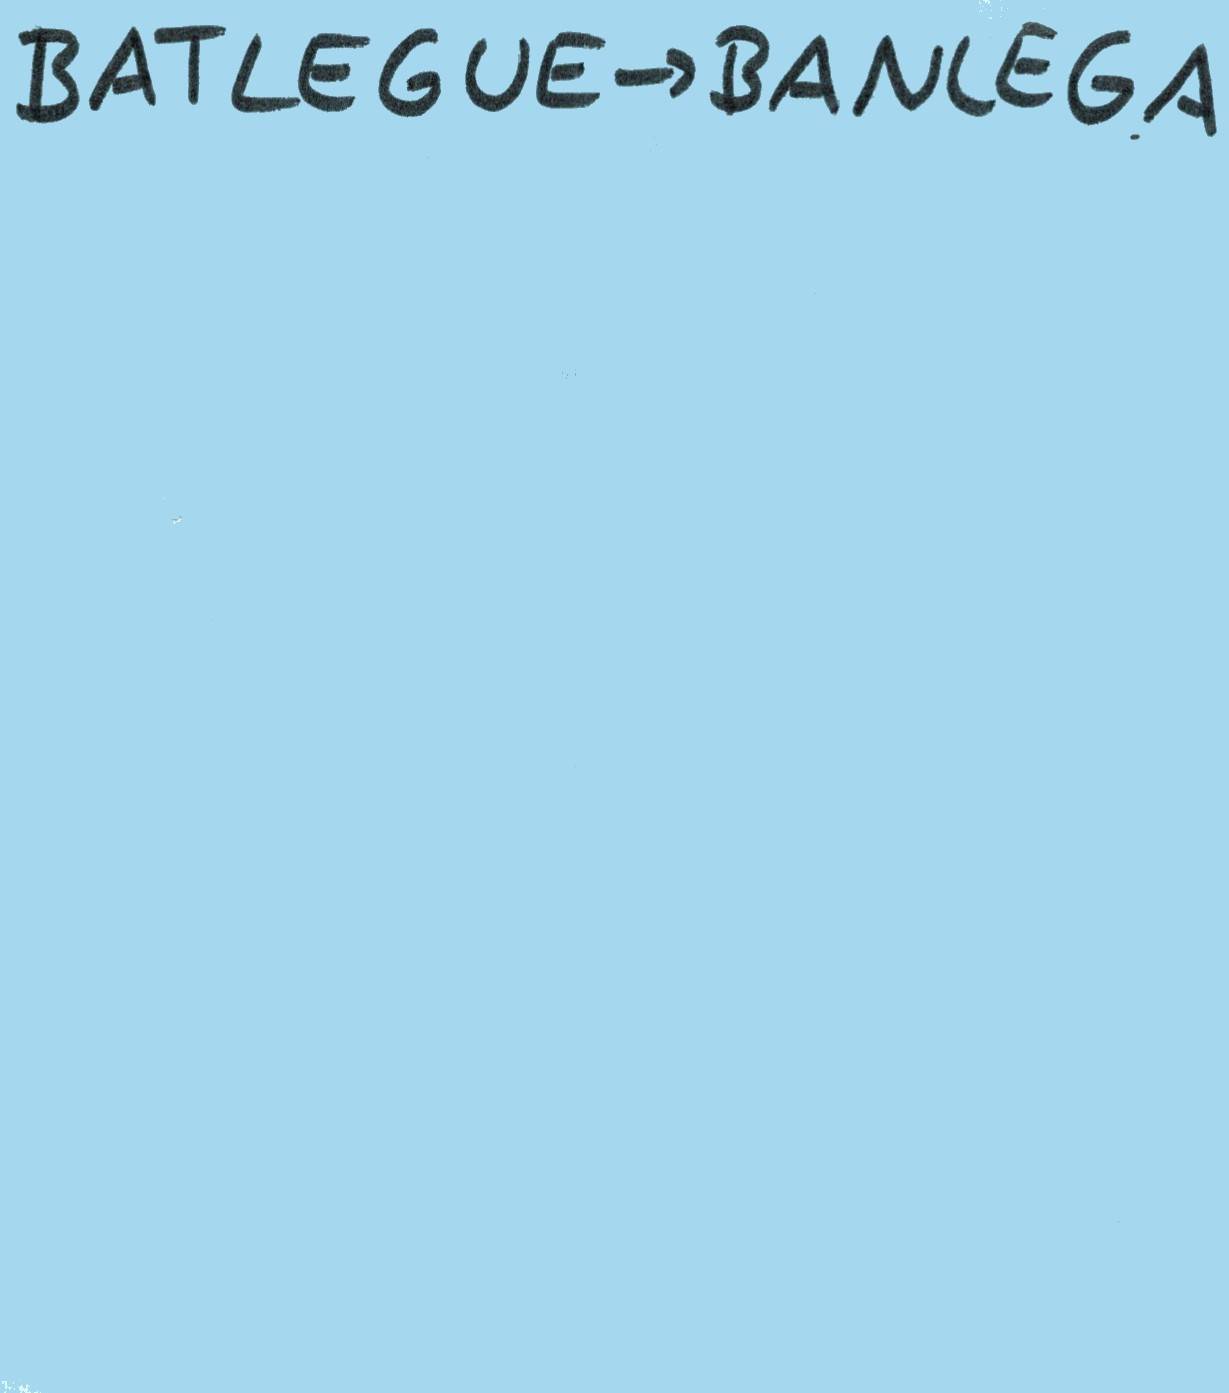 BATLEGUE→BANLEGA